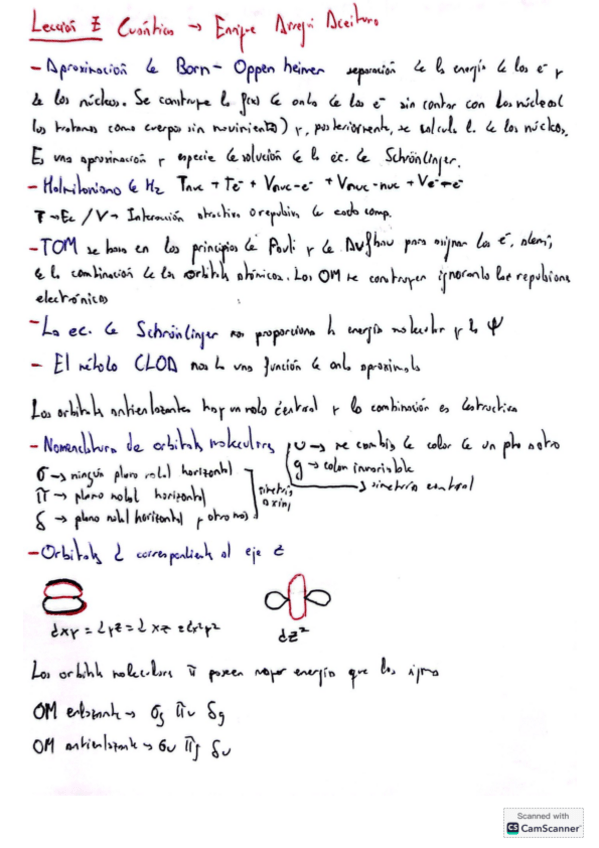 Lección Z Cuántica → Enrique Arregui Aceituno
- Aproximación de Born - Oppenheimer separación de la energía de los e⁻ y
de los núcleos. Se construye la f(x) de onda de los e⁻ sin contar con los núcleos(
los tratamos como cuerpos sin movimiento) y, posteriormente, se calcula l. de los núcleos.
Es una aproximación y especie de solución de la ec. de Schrödinger.
- Halmiltoniano de H₂ Tnuc + Te⁻ + Vnuc-e⁻ + Vnuc-nuc + Ve⁻-e⁻
T → Ec / V → Interacción atractiva o repulsiva de cada comp.
- TOM se basa en los principios de Pauli y de Aufbau para asignar los e⁻,
de la combinación de los orbitals atómicos. Los OM se construyen ignorando las repulsiones
electrónicas
- La ec. de Schrödinger nos proporciona la energía molecular y la Ψ
- El método CLOA nos da una función de onda aproximada
Los orbitals antienlazantes hay un nodo central y la combinación es destructiva
- Nomenclatura de orbitals moleculares u → se cambia de color de un pto a otro
g → color invariable
σ → ningún plano nodal horizontal
π → plano nodal horizontal
δ → plano nodal horizontal y otro más
simetría axial
→ simetría central
- Orbitals d correspondiente al eje z
dxy = dyz = dxz = dx²y²
dz²
Los orbitals moleculares π poseen mayor energía que los sigma
OM enlazante → σg πu δg
OM antienlazante → σu πg δu
Scanned with
CS CamScanner